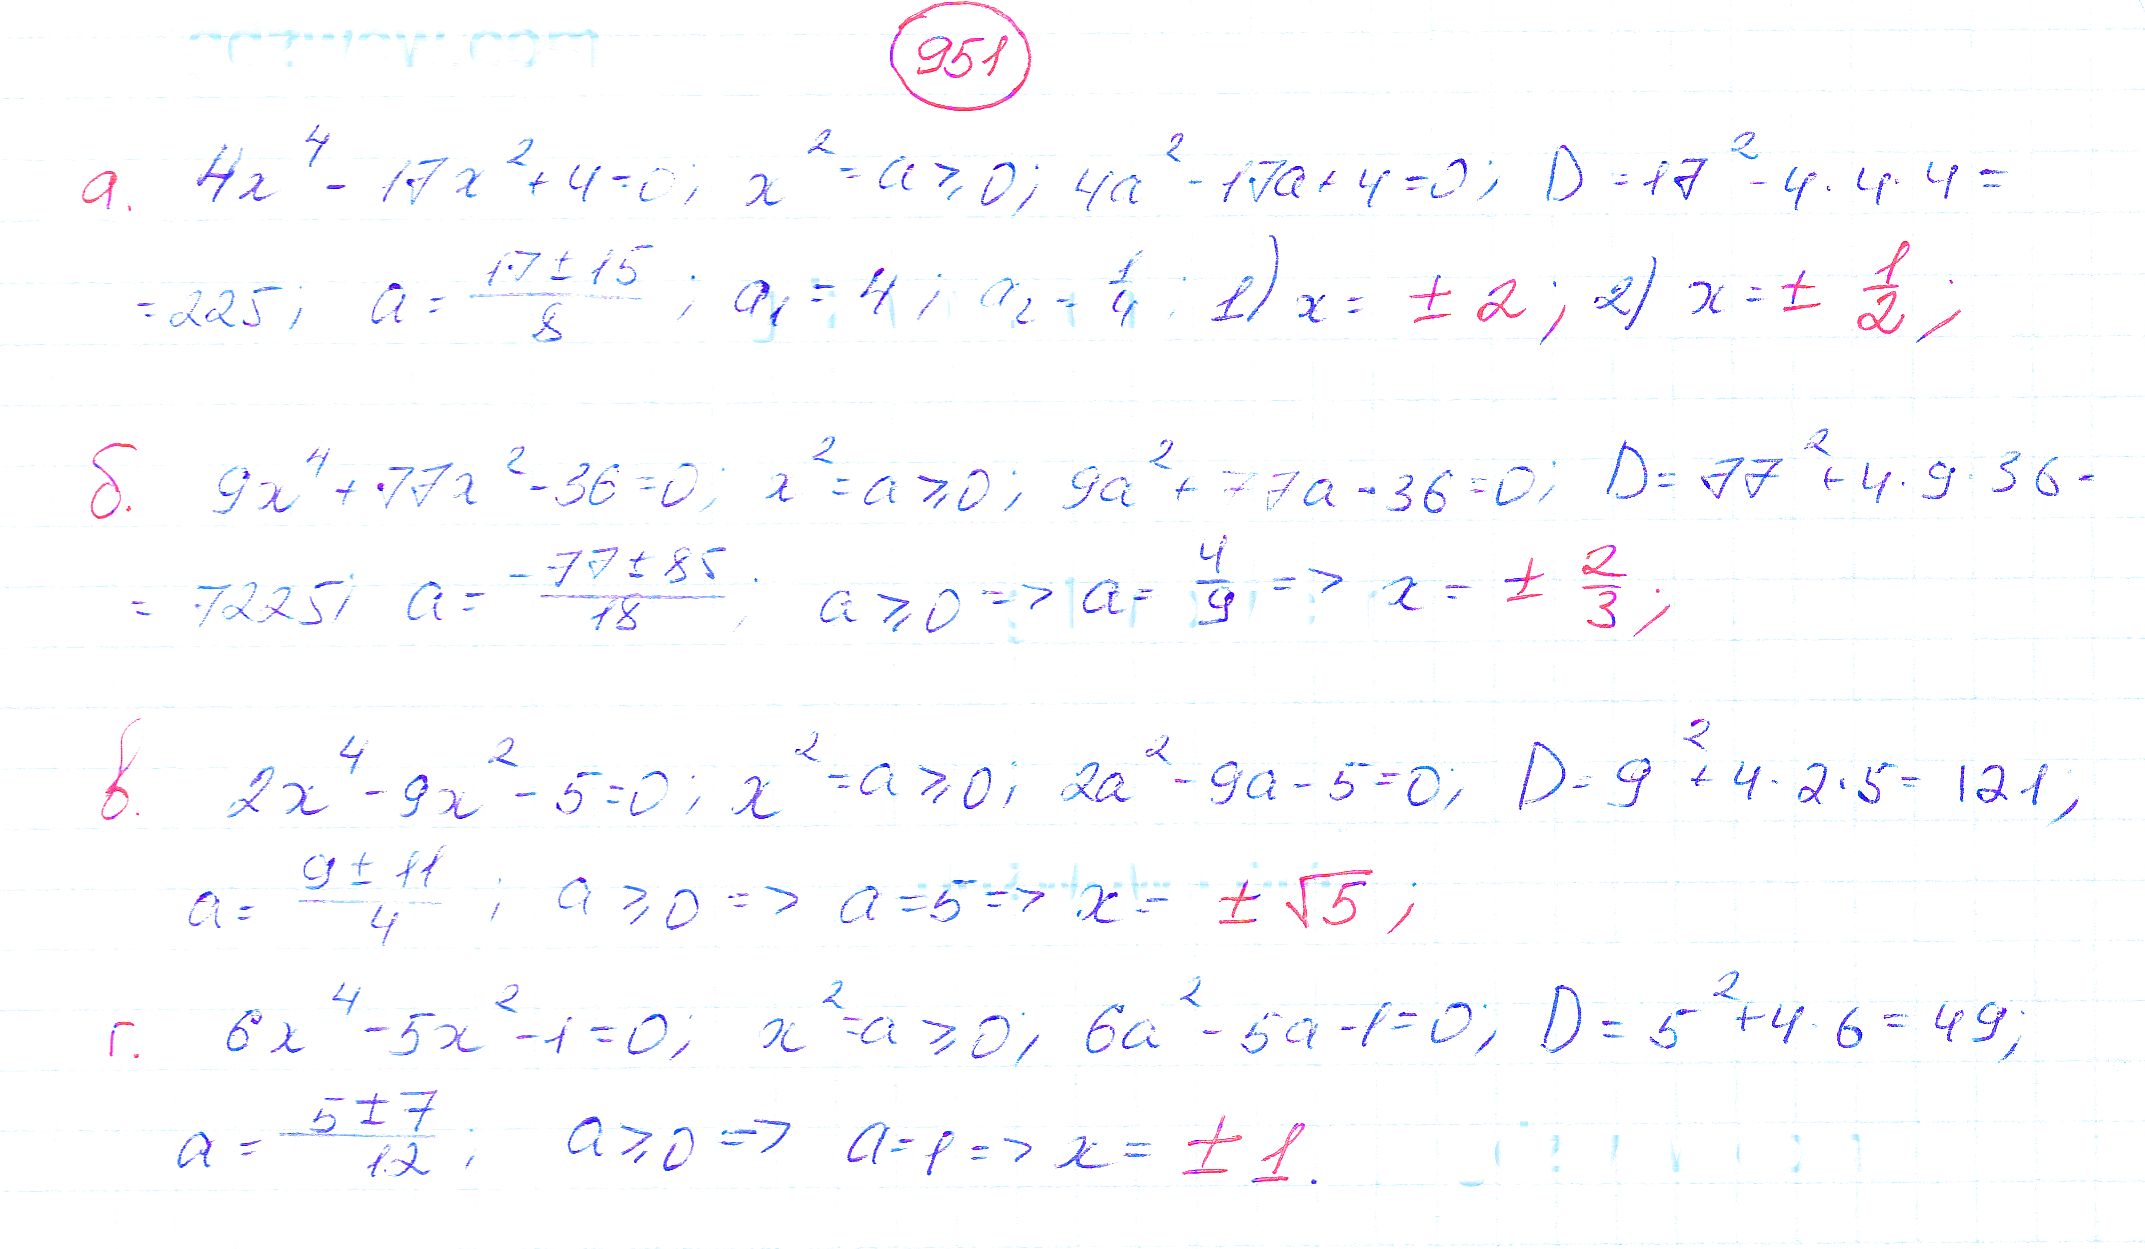 951
а. 4x⁴ - 17x² + 4 = 0; x² = a ⩾ 0; 4a² - 17a + 4 = 0; D = 17² - 4·4·4 =
= 225; a = (17 ± 15)/8; a₁ = 4; a₂ = 1/4; 1) x = ± 2; 2) x = ± 1/2;
б. 9x⁴ + 77x² - 36 = 0; x² = a ⩾ 0; 9a² + 77a - 36 = 0; D = 77² + 4·9·36 =
= 7225; a = (-77 ± 85)/18; a ⩾ 0 => a = 4/9 => x = ± 2/3;
в. 2x⁴ - 9x² - 5 = 0; x² = a ⩾ 0; 2a² - 9a - 5 = 0; D = 9² + 4·2·5 = 121;
a = (9 ± 11)/4; a ⩾ 0 => a = 5 => x = ± √5;
г. 6x⁴ - 5x² - 1 = 0; x² = a ⩾ 0; 6a² - 5a - 1 = 0; D = 5² + 4·6 = 49;
a = (5 ± 7)/12; a ⩾ 0 => a = 1 => x = ± 1.